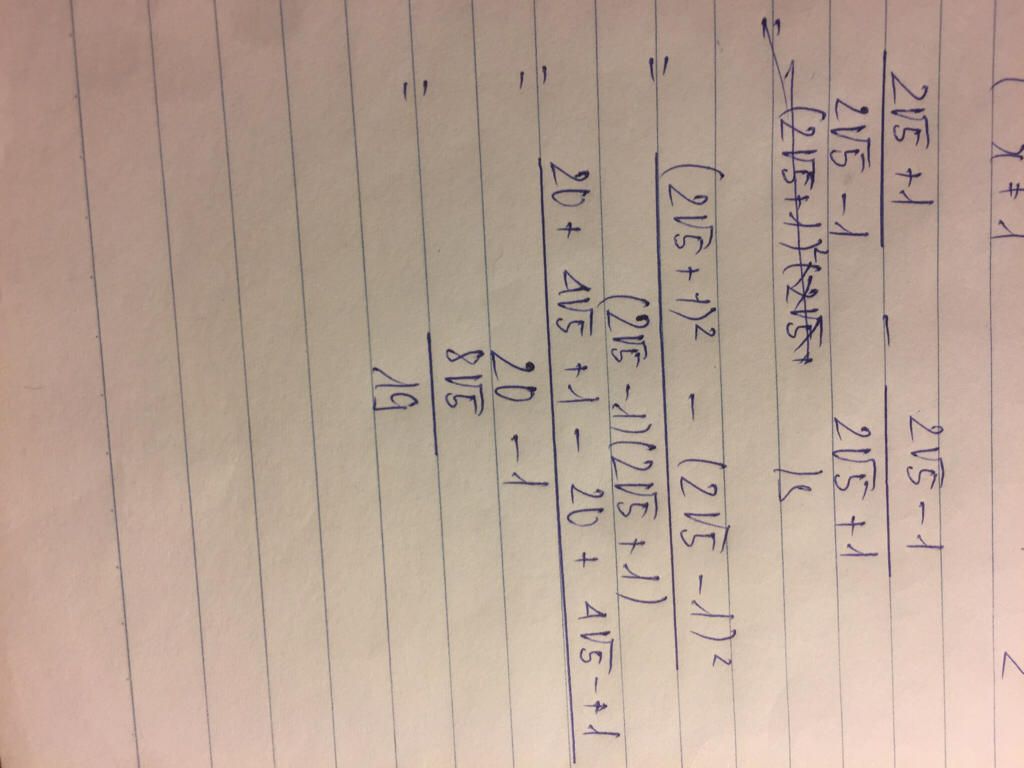 ( x ≠ 1
(2√5 + 1)/(2√5 − 1) − (2√5 − 1)/(2√5 + 1)
= (2√5+1)²(2√5+
= ((2√5 + 1)² − (2√5 − 1)²)/((2√5 − 1)(2√5 + 1))
= (20 + 4√5 + 1 − 20 + 4√5 − 1)/(20 − 1)
= 8√5/19